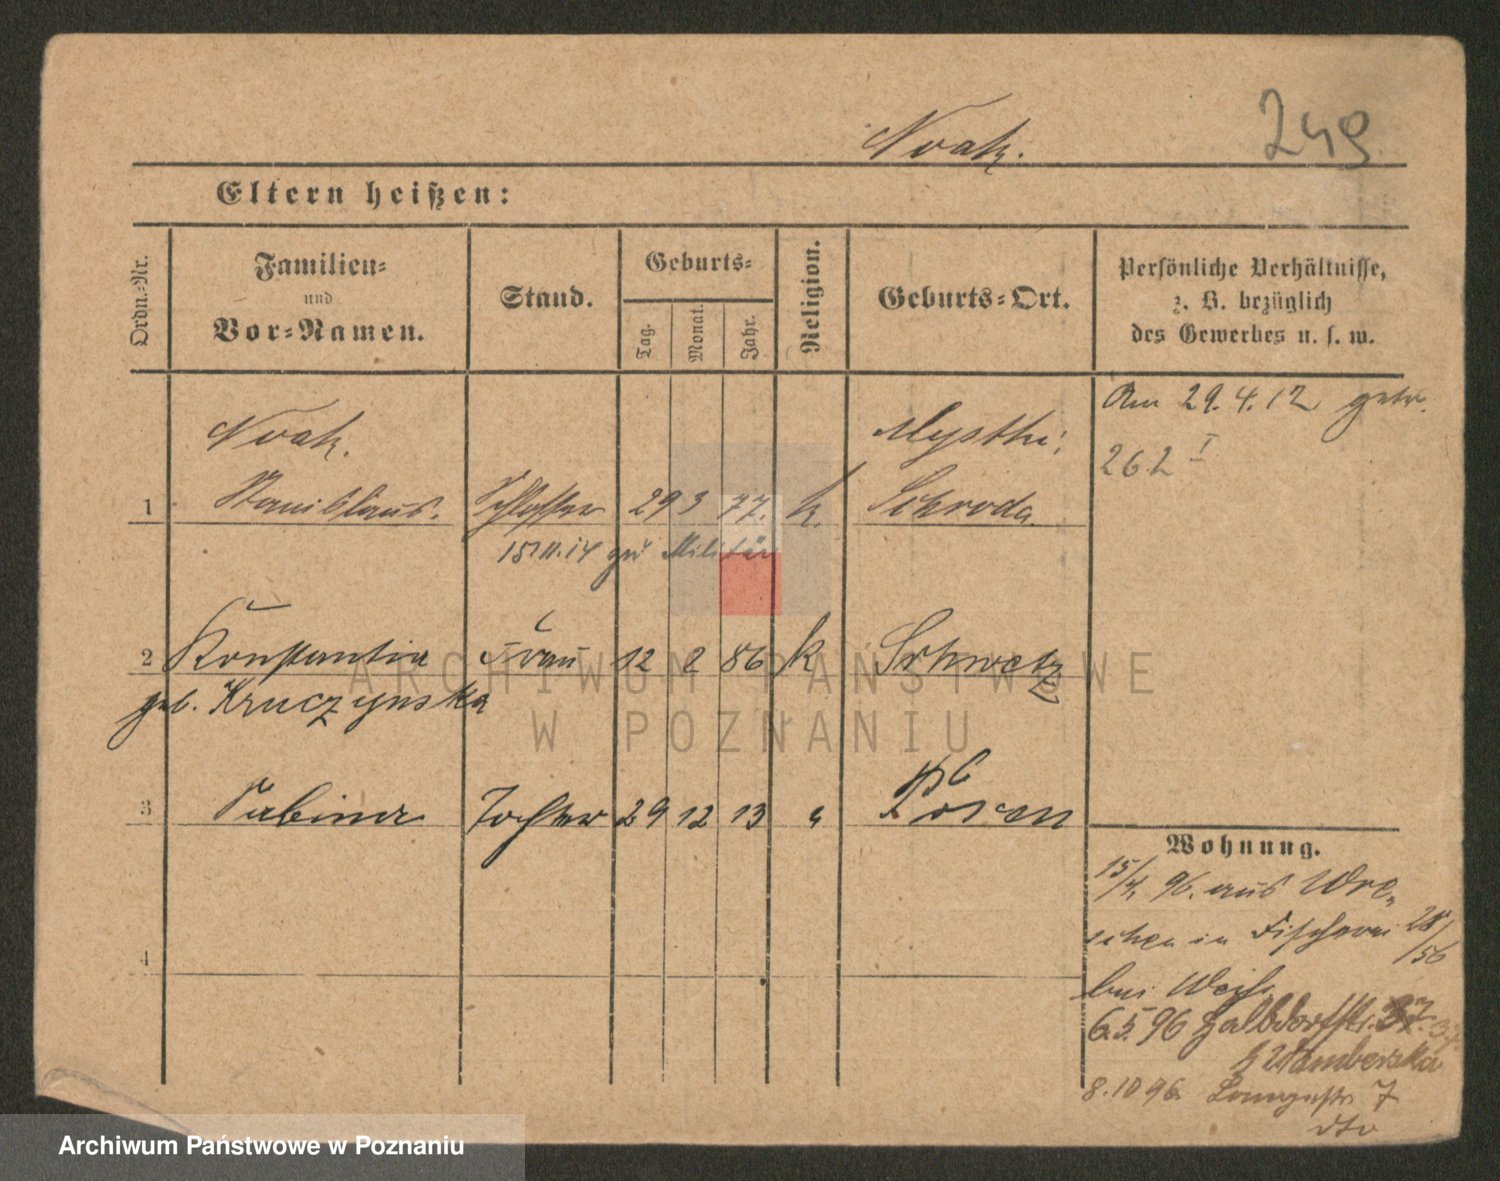 Noak.
249
Eltern heißen:
Ordn.-Nr.
Familien-
und
Vor-Namen.
Stand.
Geburts-
Tag.
Monat.
Jahr.
Religion.
Geburts-Ort.
Persönliche Verhältnisse,
z. B. bezüglich
des Gewerbes u. s. w.
Am 29.4.12 getr.
262 I
Noak.
1 Stanislaus. Schlosser 29 3 77. k.
Schroda
15.11.14 zu Militär
2 Konstantia Frau 12 2 86 k Schwetz
geb. Kruczynska
3 Sabina Tochter 29 12 13 " Posen
4
Wohnung.
15/4 96. aus Wre-
schen in Fischerei 28/56
bei Weiß
6.5.96 Halbdorfstr. 37.
8.10 96. Langestr 7
dto
ARCHIWUM PAŃSTWOWE
W POZNANIU
Archiwum Państwowe w Poznaniu